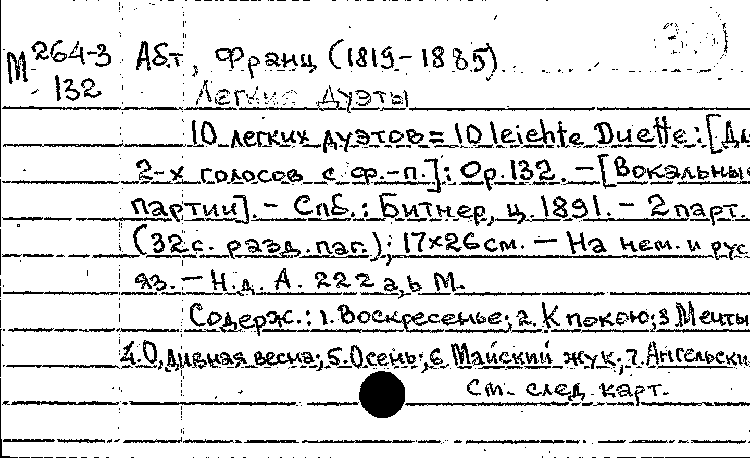 М 264-3 Абт, Франц (1819-1885)
132 Легкие дуэты
10 легких дуэтов = 10 leichte Duette: [Дл
2-х голосов с ф.-п.]: Op. 132. - [Вокальные
партии]. - Спб.: Битнер, ц. 1891. - 2 парт.
(32 с. разд. паг.); 17x26 см. - На нем. и рус
яз. - Н.д. A. 222 a,b M.
Содерж.: 1. Воскресенье; 2. К покою; 3 Мечты
4. О, дивная весна; 5. Осень; 6 Майский жук; 7. Ангельски
См. след. карт.